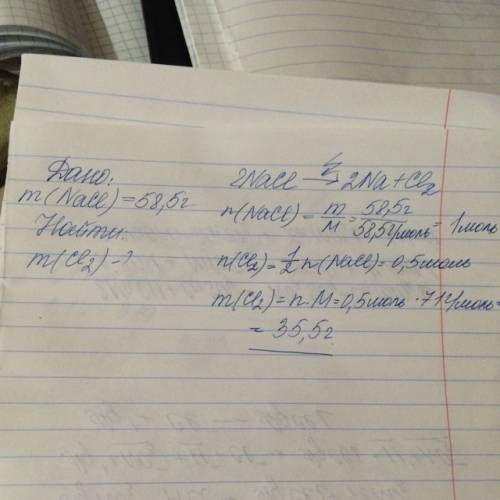 Дано:
m(NaCl)=58,5г
Найти:
m(Cl₂)-?
2NaCl → 2Na+Cl₂
n(NaCl) = m/M = 58,5г/58,5г/моль = 1моль
n(Cl₂)=1/2 n(NaCl)=0,5моль
m(Cl₂)=n·M=0,5моль·71г/моль=
= 35,5г